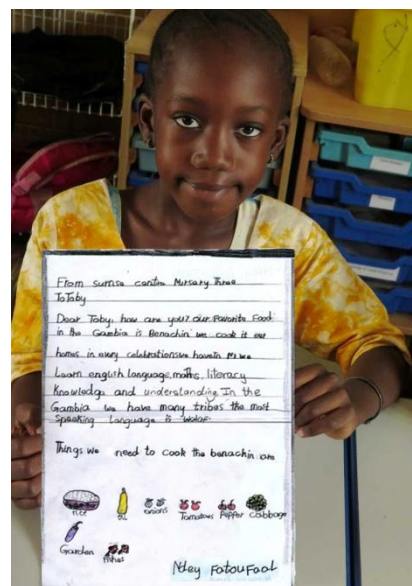 From sunrise centre Nursery Three
To Toby
Dear Toby, how are you? our favorite Food
in the Gambia is Benachin we cook it our
homes in every celebrations we have in N3 we
Learn english language, maths, literacy
knowledge and understanding In the
Gambia we have many tribes the most
Speaking Language is wolof
Things we need to cook the benachin are
rice oil onions Tomatoes Pepper cabbage
Garden
Ndey Fatou Faal